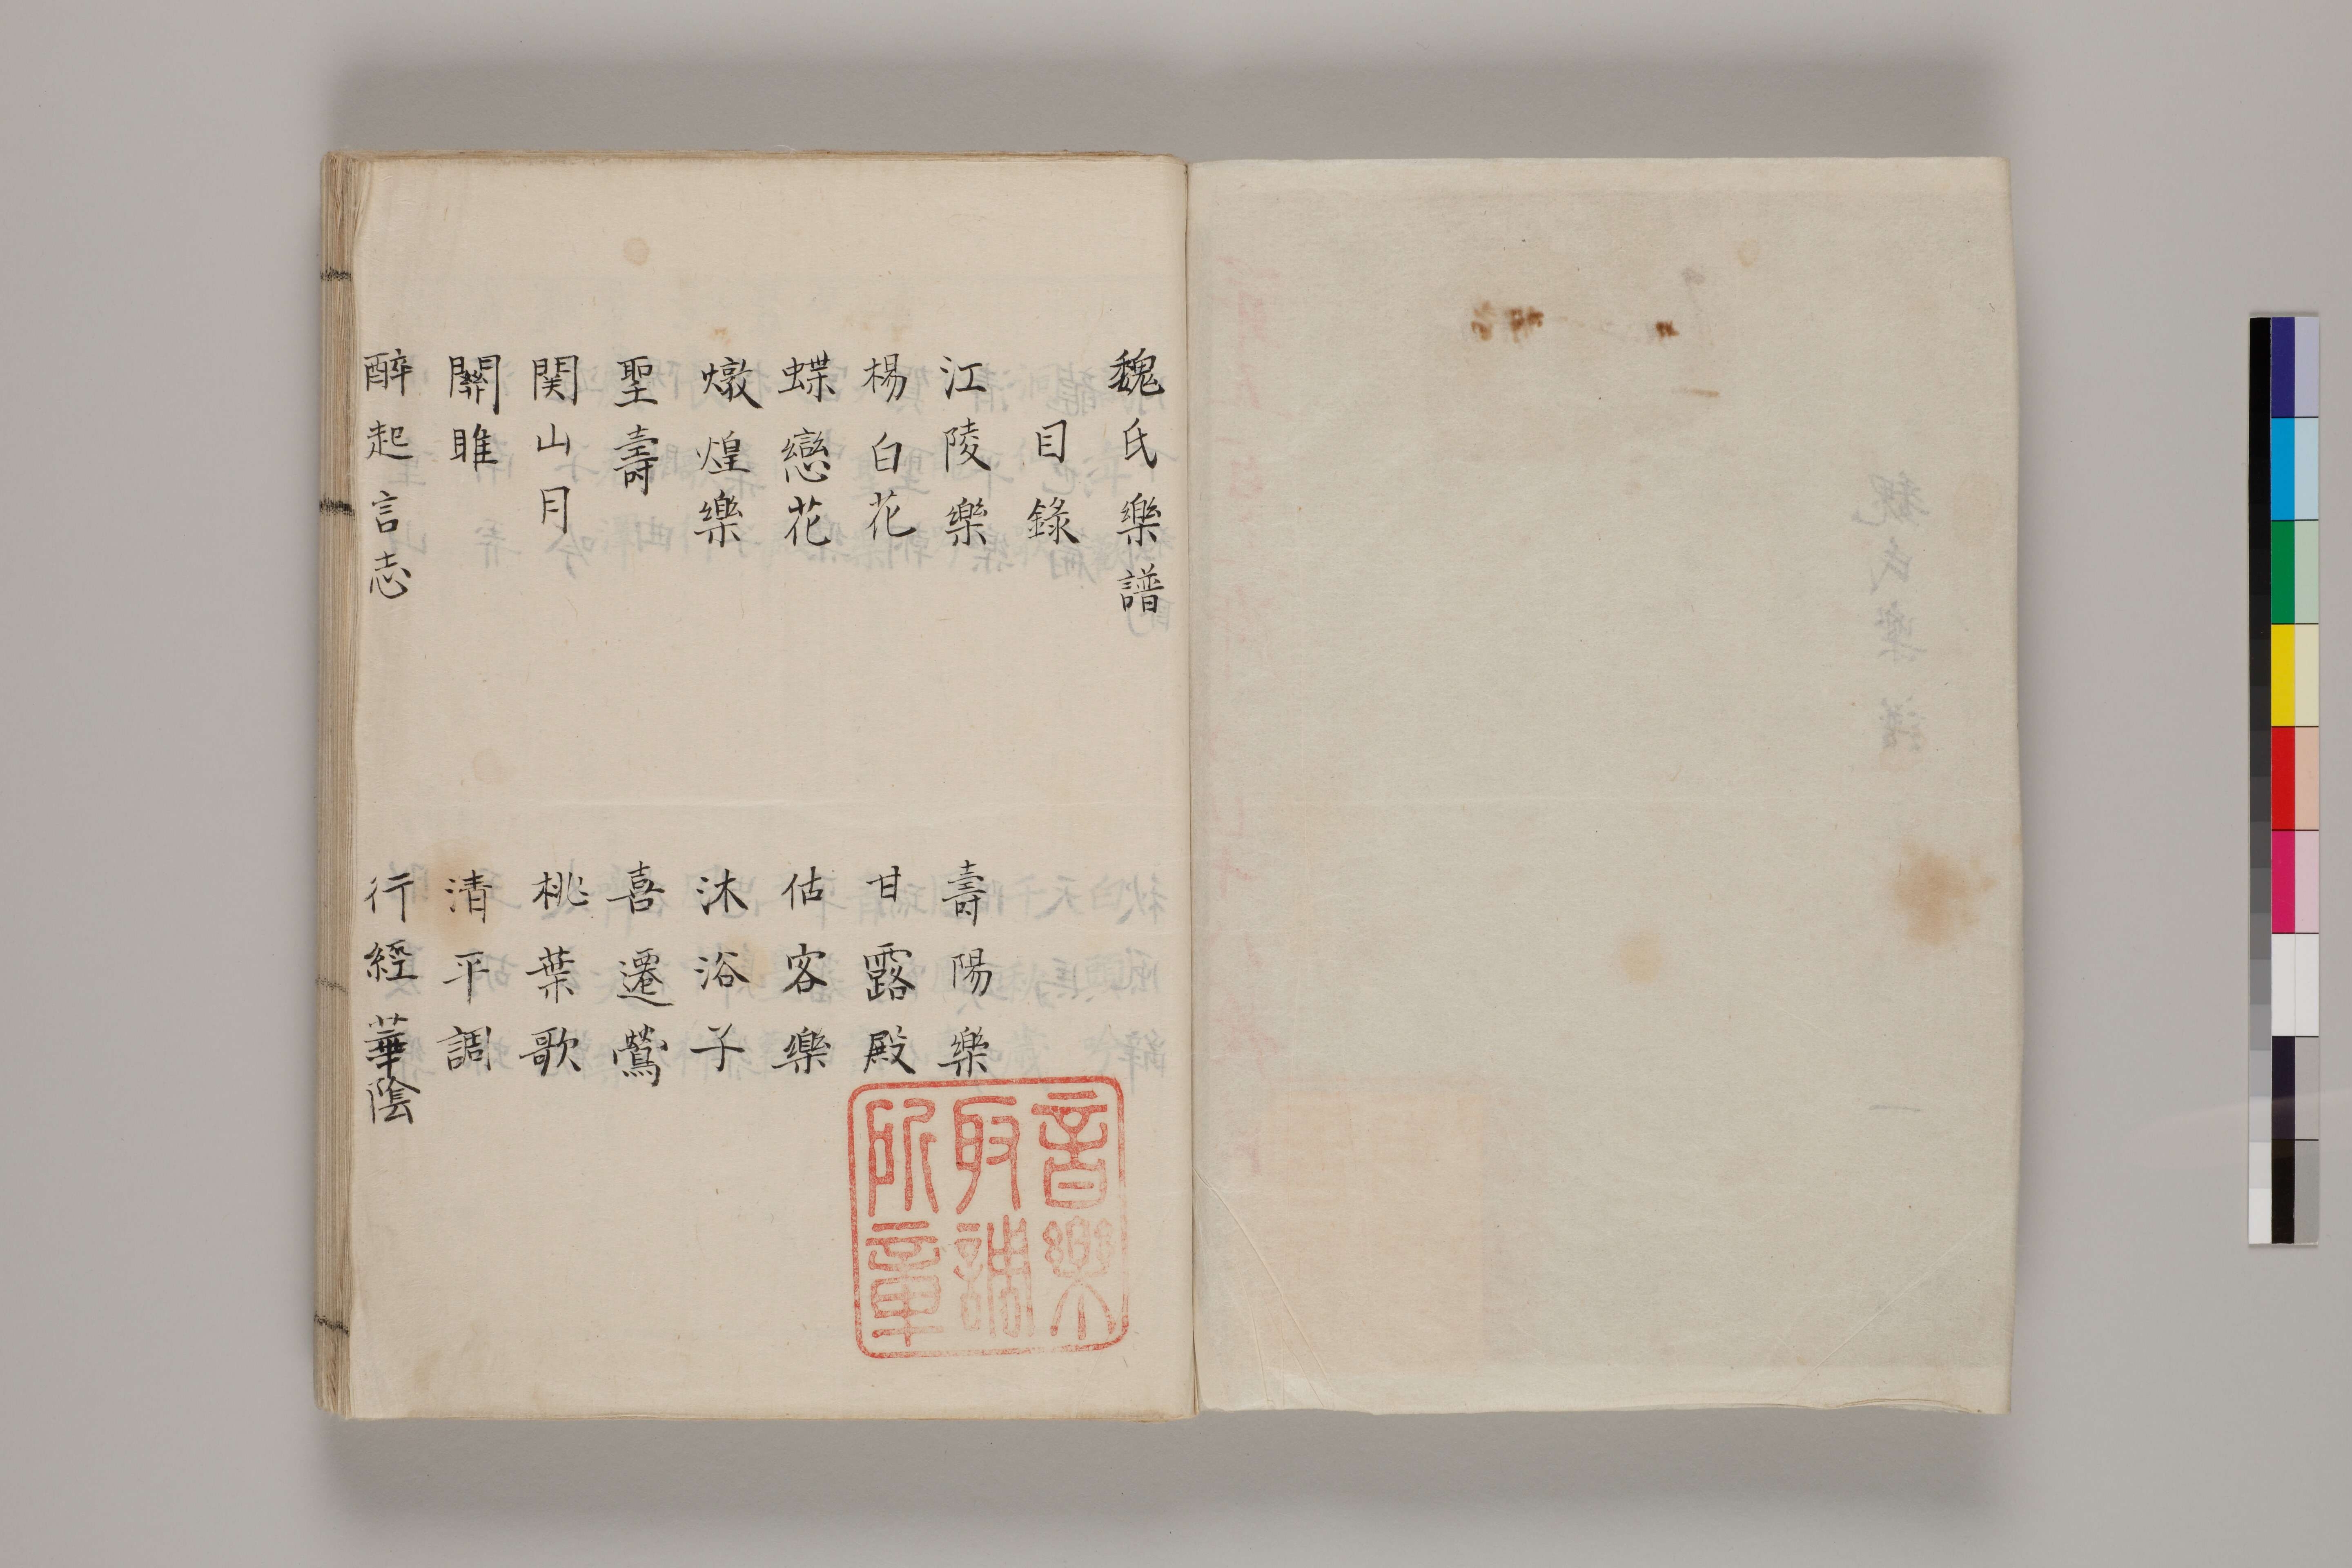 魏氏樂譜
目錄
江陵樂
壽陽樂
楊白花
甘露殿
蝶戀花
估客樂
燉煌樂
沐浴子
聖壽
喜遷鶯
関山月
桃葉歌
關雎
清平調
醉起言志
行經華陰
音樂
取調
所章
魏氏樂譜 一